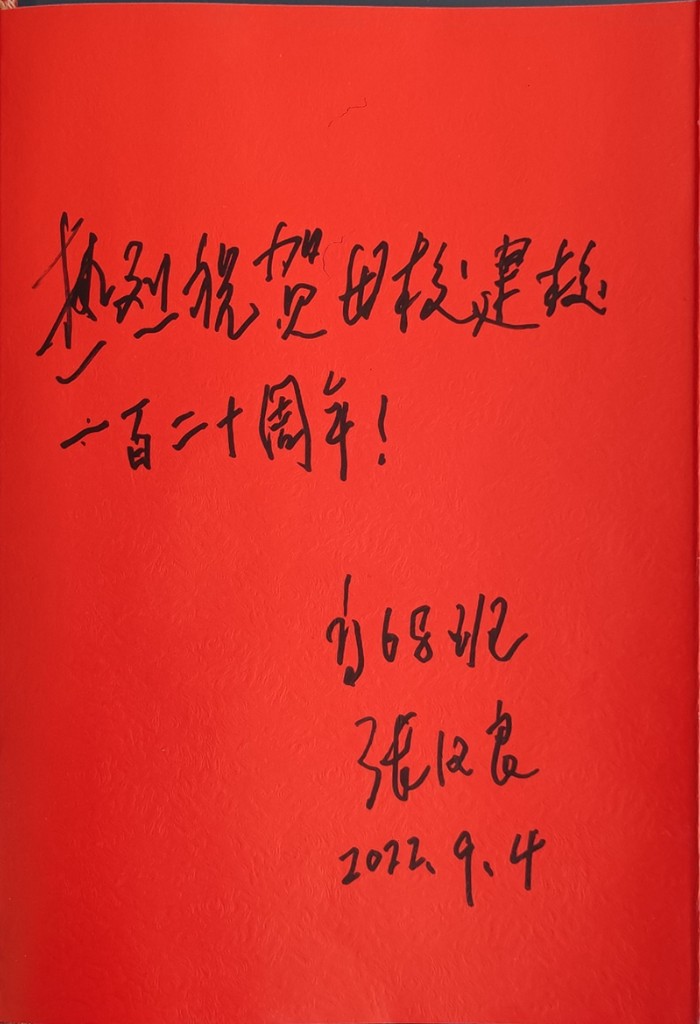 热烈祝贺母校建校
一百二十周年!
高68班
张汉良
2022.9.4